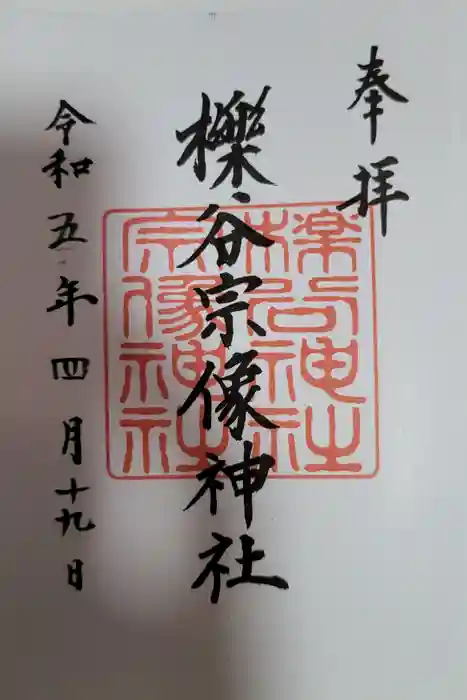 奉拝
櫟谷宗像神社
櫟谷神社
宗像神社
令和五年四月十九日